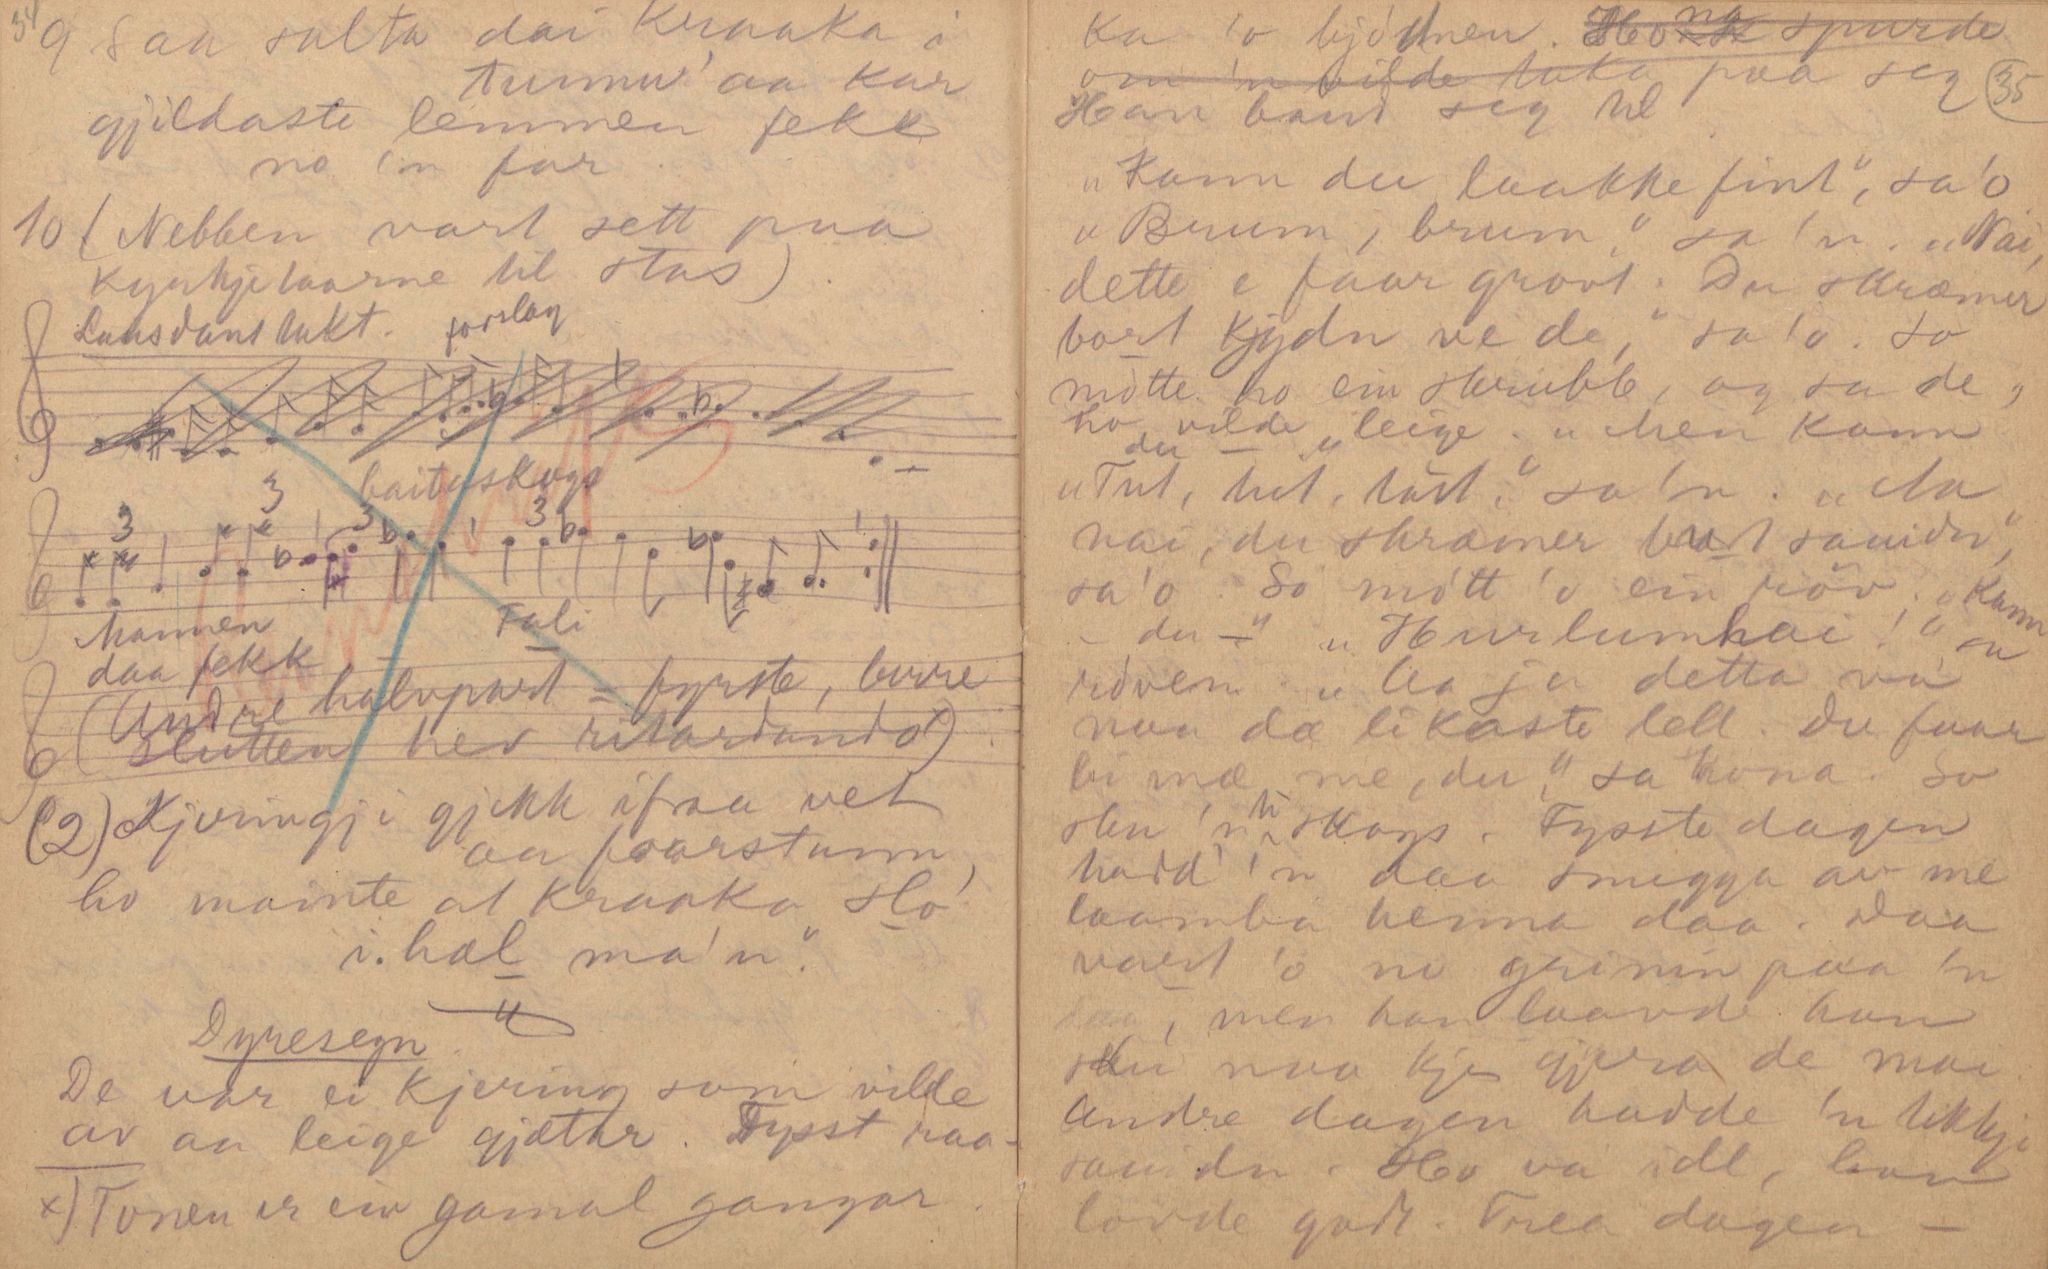 34
9 Saa salta dai Kraaka i
tunnu' aa kar
gjildaste lemmen fekk
no 'n far
10 (Nebben vart sett paa
kyrkjetaarne til stas)
Lausdanstakt. forslag
baitaskogs
3 3 3 3
Mannen Tali
daa fekk
(Andre halvpart = fyrste, berre
slutten hev ritardando)
(2) Kjeringji gjekk ifraa vet
aa forstann,
ho mainte at Kraaka slo'
i. hæl ma'n."
Dyresegn
De var ei kjering som vilde
av aa leige gjætar. Fysst raa-
x) Tonen er ein gamal gangar.
35
ka 'o bjødnen. spurde
om 'n vilde taka paa seg
Han baud seg til
"Kann du laakke fint", sa'o
"Brum, brum," sa 'n. "Nai,
dette e faar grovt. Du skræmer
bort kjydn ve de," sa 'o. So
møtte ho ein skrubb, og sa de,
ho vilde leige. "Men kann
du —"
"Tut, tut, tut," sa 'n. "Aa
nai, du skræmer bort sauidn",
sa'o. So møtt 'o ein röv. "Kann
- du —" "Hurlumhai!" sa
röven. "Aa ja detta va
naa dæ likaste lell. Du faar
bi mæ me, du," sa kona. So
sku 'n ti skogs. Fysste dagen
hadd 'n daa smugga av me
laamba henna daa. Daa
vart 'o no grinin paa 'n
, men han laavde han
sku naa kje gjera de mai
Andre dagen hadde 'n tikkji
sauidn. Ho va idl, han
lovde godt. Trea dagen —